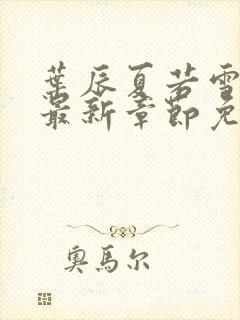 葉辰夏若雪
最新章節免
奧馬尔